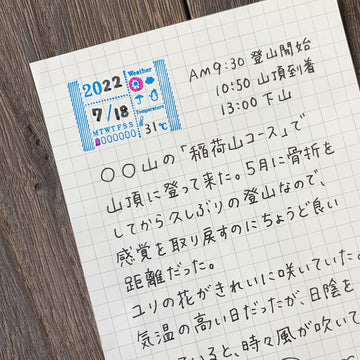 2022
Weather
7/18
Temperature
MTWTFSS
31℃
AM9:30 登山開始
10:50 山頂到着
13:00 下山
〇〇山の「稲荷山コース」で
山頂に登って来た。5月に骨折を
してから久しぶりの登山なので、
感覚を取り戻すのにちょうど良い
距離だった。
ユリの花がきれいに咲いていた。
気温の高い日だったが、日陰を
いると、時々風が吹いて